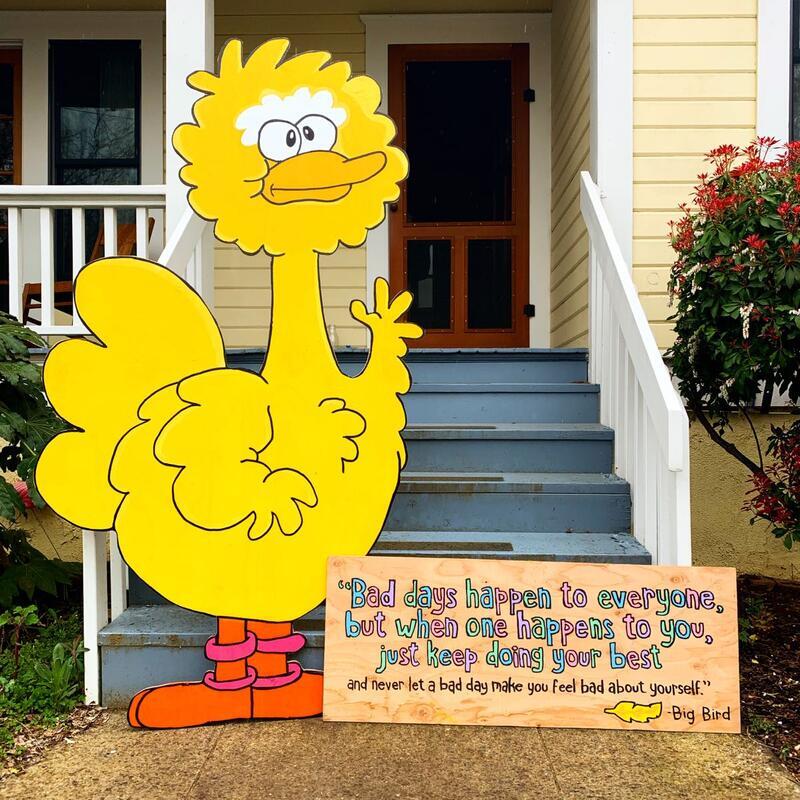 “Bad days happen to everyone,
but when one happens to you,
just keep doing your best
and never let a bad day make you feel bad about yourself.”
-Big Bird